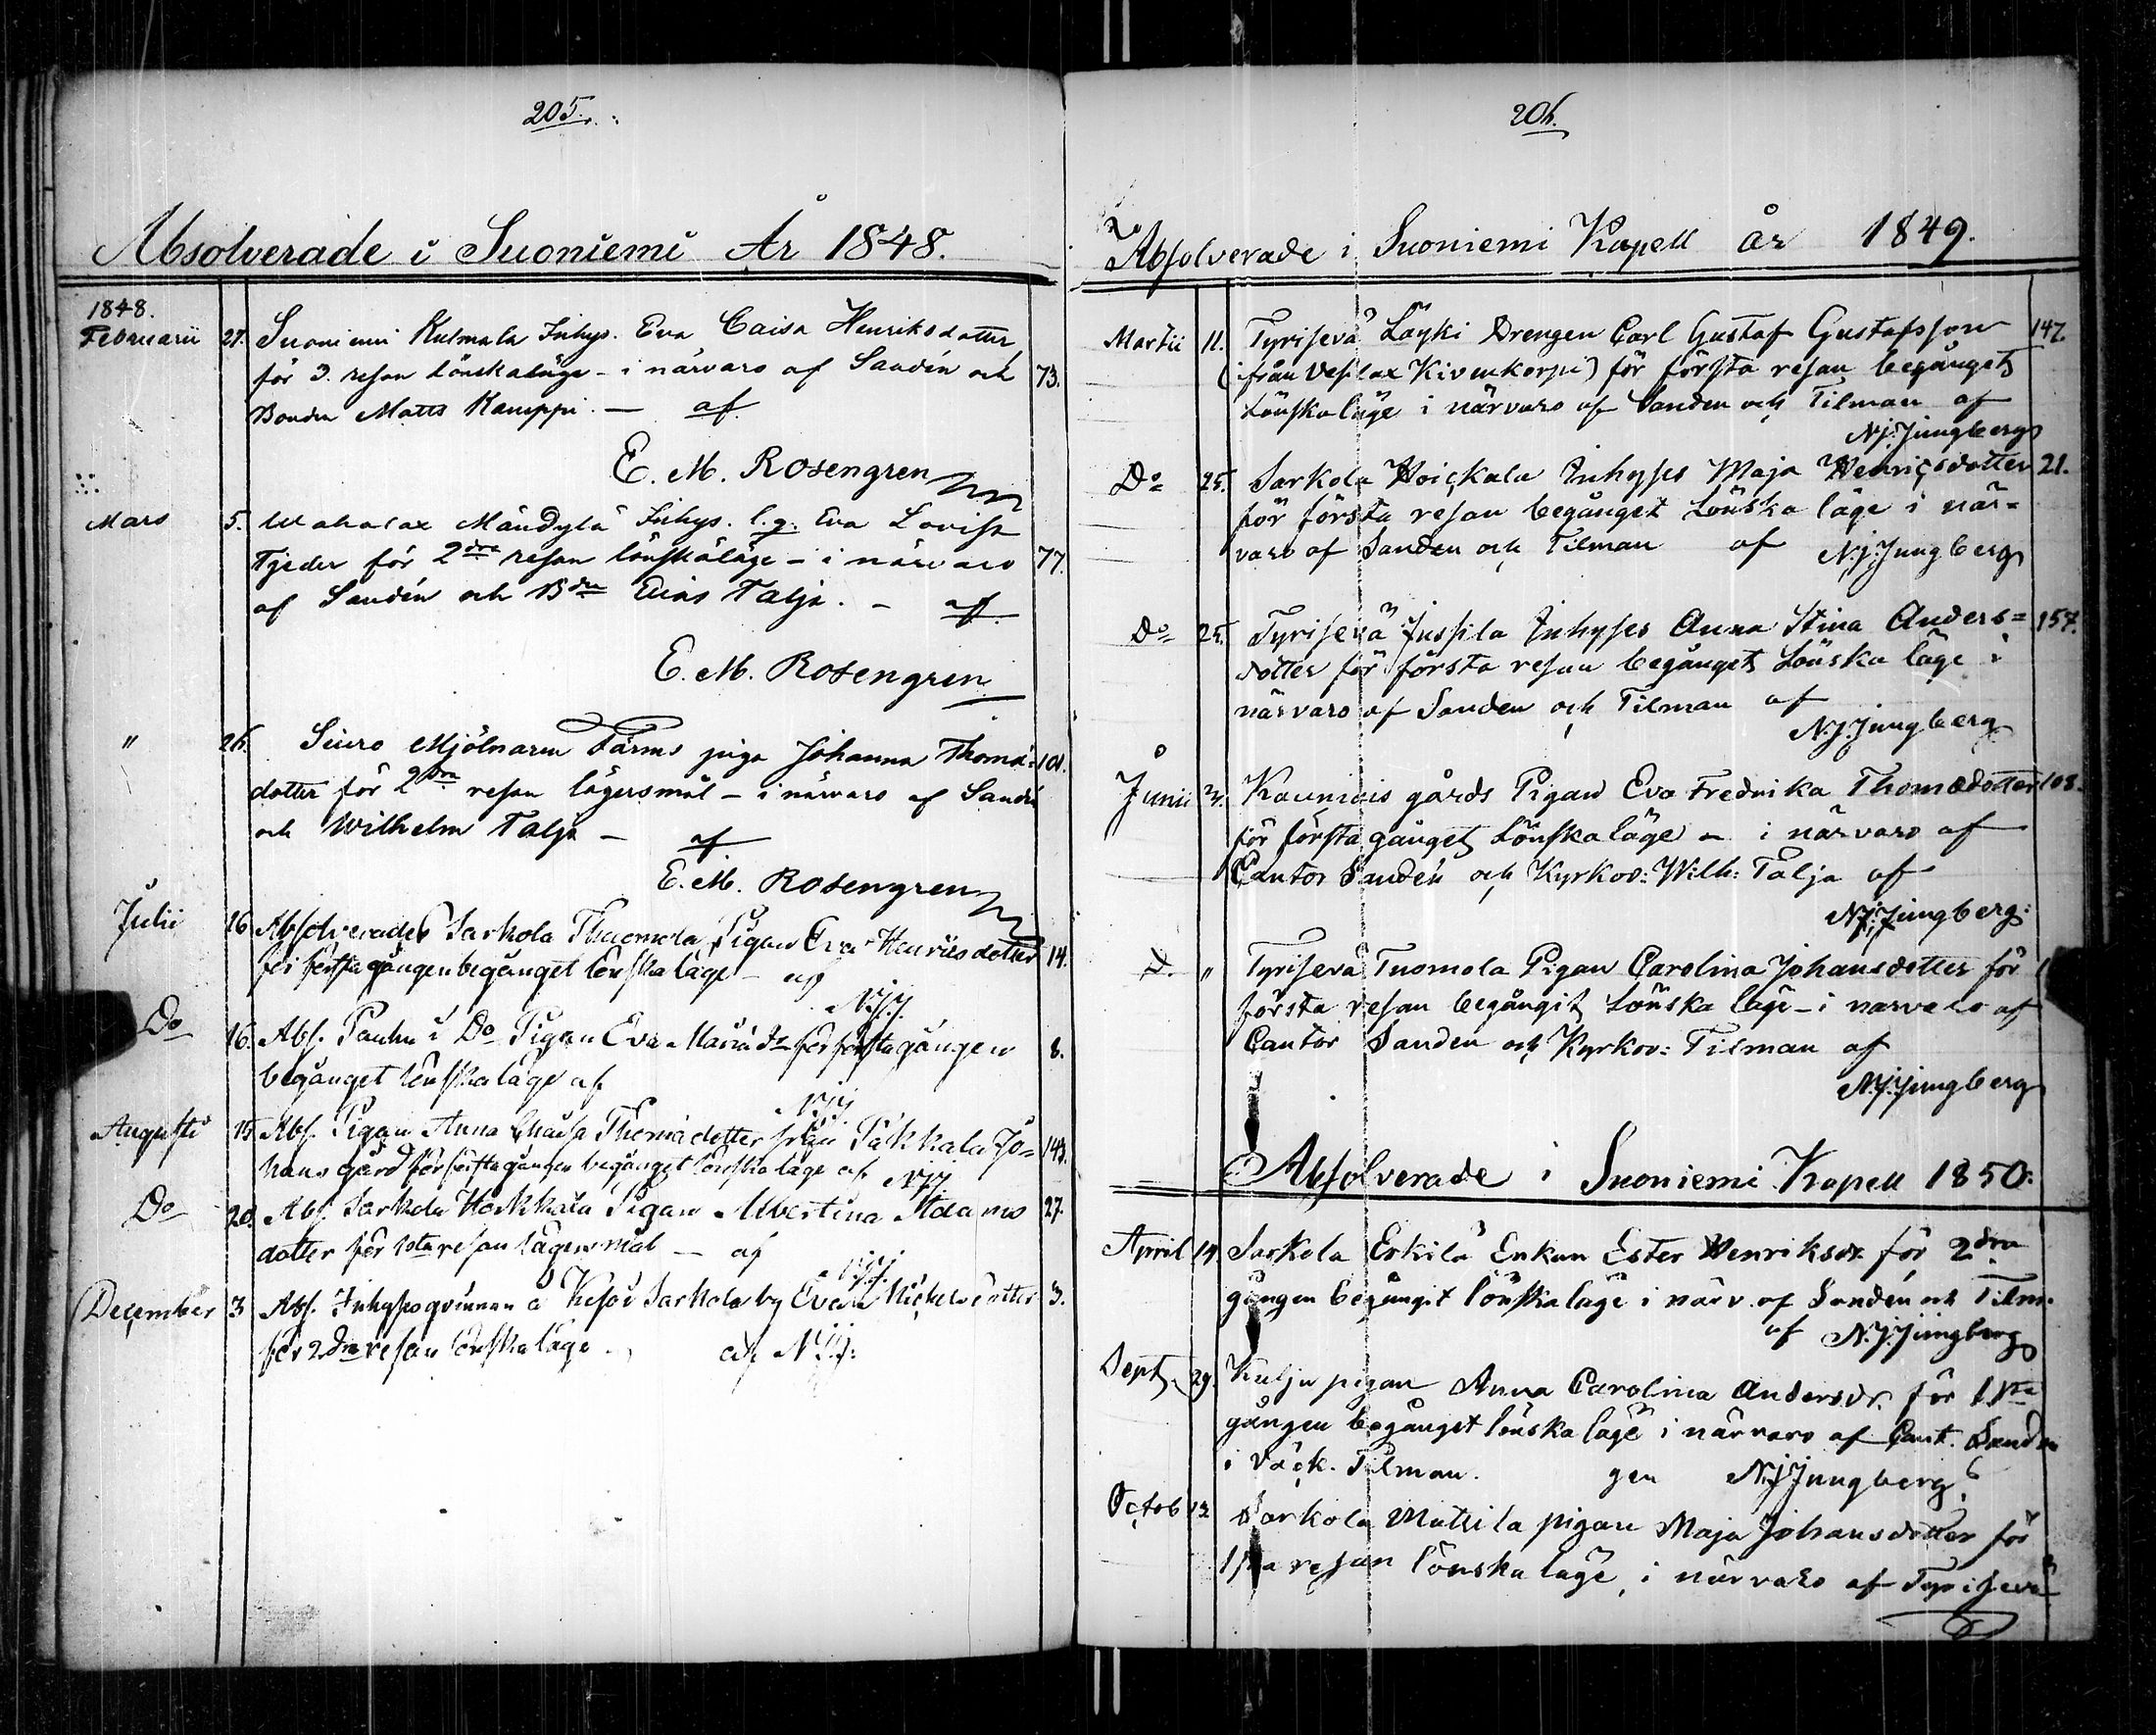 205.
Absolverade i Suoniemi År 1848.
1848.
Februarii 27. Suoniemi Kulmala Inhys. Eva Caisa Henriksdotter
för 3. resan lönskaläge - i närvaro af Sandén och 73.
Bonden Matts Kamppi. — af
E. M. Rosengren
Mars 5. Mändylä Inhys. l.q. Eva Lovisa
Tjeder för 2dra resan lönskaläge - i närvaro 77.
af Sandén och Bdn Talja. - af
E. M. Rosengren
" 26. Siuro Mjölnaren Färms piga Johanna Thomæ- 101.
dotter för 2dra resan lägersmål - i närvaro af Sandén
och Wilhelm Talja - af
E. M. Rosengren
Julii 16. Absolverades Sarkola Thuomola Pigan Eva Henricsdotter 14.
för första gången begånget lönska läge - af
N.J.J.
Do 16. Abs. Pauhu i Do Pigan Eva Mariä dr för första gången 8.
begånget lönska läge af
N.J.J.
Augusti 15. Abs. Pigan Anna Thomædotter från Päkkala Jo= 143.
hans gård för första gången begånget lönska läge af N.J.J.
Do 20. Abs. Sarkola Pigan Albertina Adams 27.
dotter för 1sta resan lägersmål — af
N.J.J.
December 3 Abs. Inhysesqvinnan å Sarkola by Eva Michelsdotter 3.
för 2dra resan lönska läge - af N.J.J.
206.
Absolverade i Suoniemi Kapell år 1849.
Martii 11. Tyrisevä Löyki Drengen Carl Gustaf Gustafsson 147.
(ifrån Vesilax Kivenkorpi) för första resan begånget
Lönska läge i närvaro af Sanden och Tilman af
N.J. Jungberg
Do 25. Sarkola Hoickala Inhyses Maja Henricsdotter 21.
för första resan begånget Lönska läge i när-
varo af Sanden och Tilman af N.J. Jungberg
Do 25. Tyrisevä Jussila Inhyses Anna Stina Anders= 157.
dotter för första resan begånget Lönska läge i
närvaro af Sanden och Tilman af
N.J. Jungberg
Junii Kauniais gårds Pigan Eva Fredrika Thomædotter 108.
för första gånget Lönska läge - i närvaro af
Cantor Sandén och Kyrkov: Wilh: Talja af
N.J. Jungberg:
D. " Tyrisevä Tuomola Pigan Carolina Johansdotter för
första resan begångit Lönska läge - i närvaro af
Cantor Sanden och Kyrkov: Tilman af
N.J. Jungberg
Absolverade i Suoniemi Kapell 1850.
April 14. Sarkola Erkilä Enkan Ester Henriksdr för 2dra
gången begångit lönska läge i närv. af Sandén och Tilm.
af N.J. Jungberg
Sept. 29. Kulju pigan Anna Carolina Andersdr. för 1sta
gången begånget lönska läge i närvaro af Cant. Sanden
i Väck. Tilman. gen N.J. Jungberg.
Octob 13 Sarkola Mattila pigan Maja Johansdotter för
1sta resan lönska läge, i närvaro af Tyrisevä